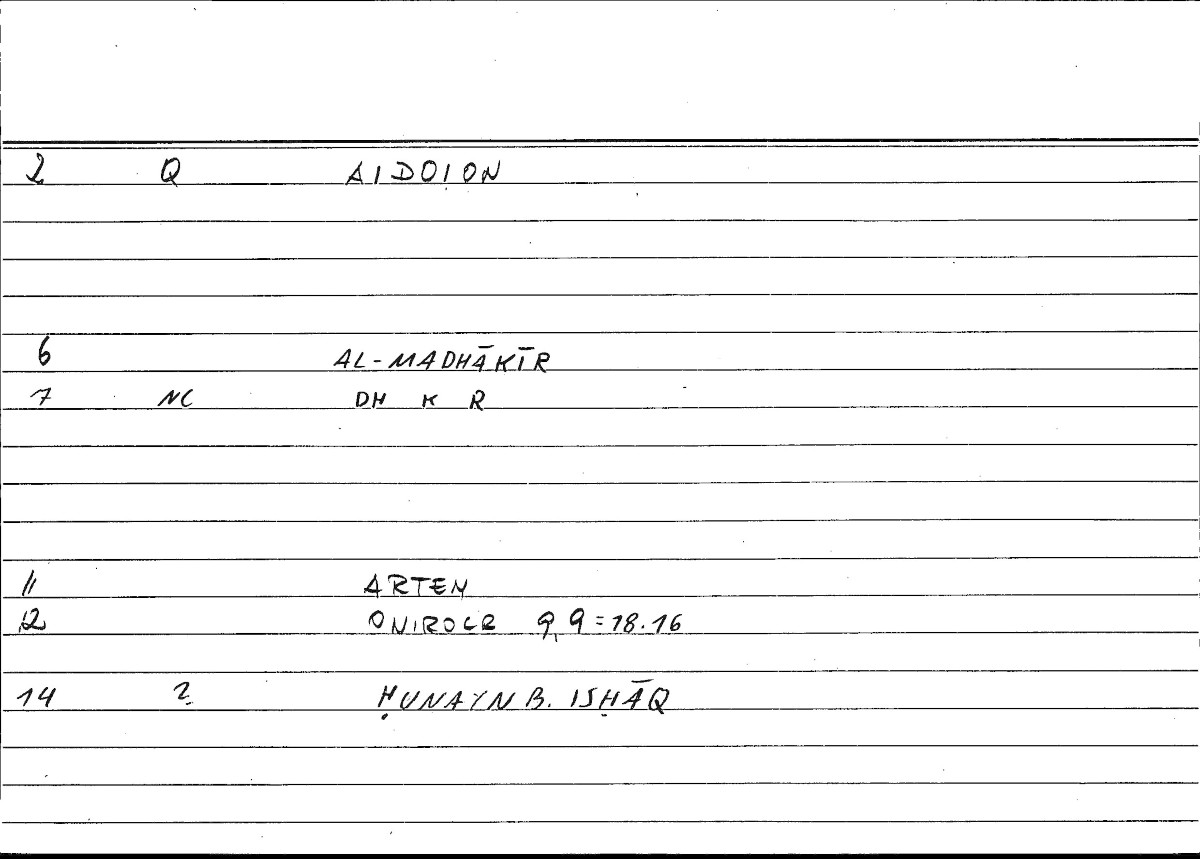 2 Q AIDOION
6 AL-MADHĀKĪR
7 NC DH K R
11 ARTEM
12 ONIROCR 9,9=18.16
14 2 ḤUNAYN B. ISḤĀQ